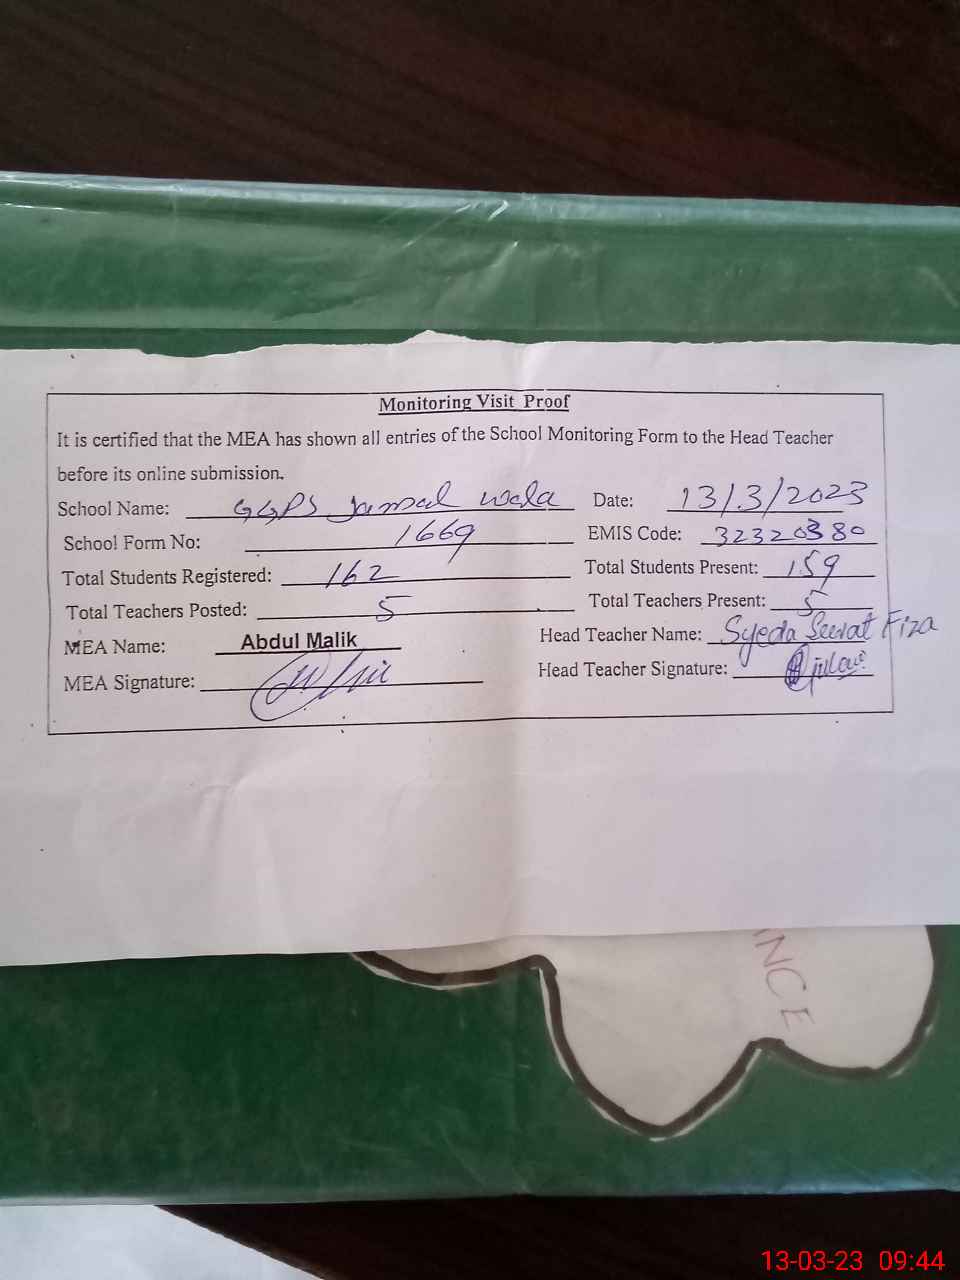 Monitoring Visit Proof
It is certified that the MEA has shown all entries of the School Monitoring Form to the Head Teacher
before its online submission.
School Name: GGPS Jamsal Wala Date: 13/3/2023
School Form No: 1669 EMIS Code: 32320380
Total Students Registered: 162 Total Students Present: 159
Total Teachers Posted: 5 Total Teachers Present: 5
MEA Name: Abdul Malik Head Teacher Name: Syeda Seerat Fiza
MEA Signature: Head Teacher Signature:
ANCE
13-03-23 09:44